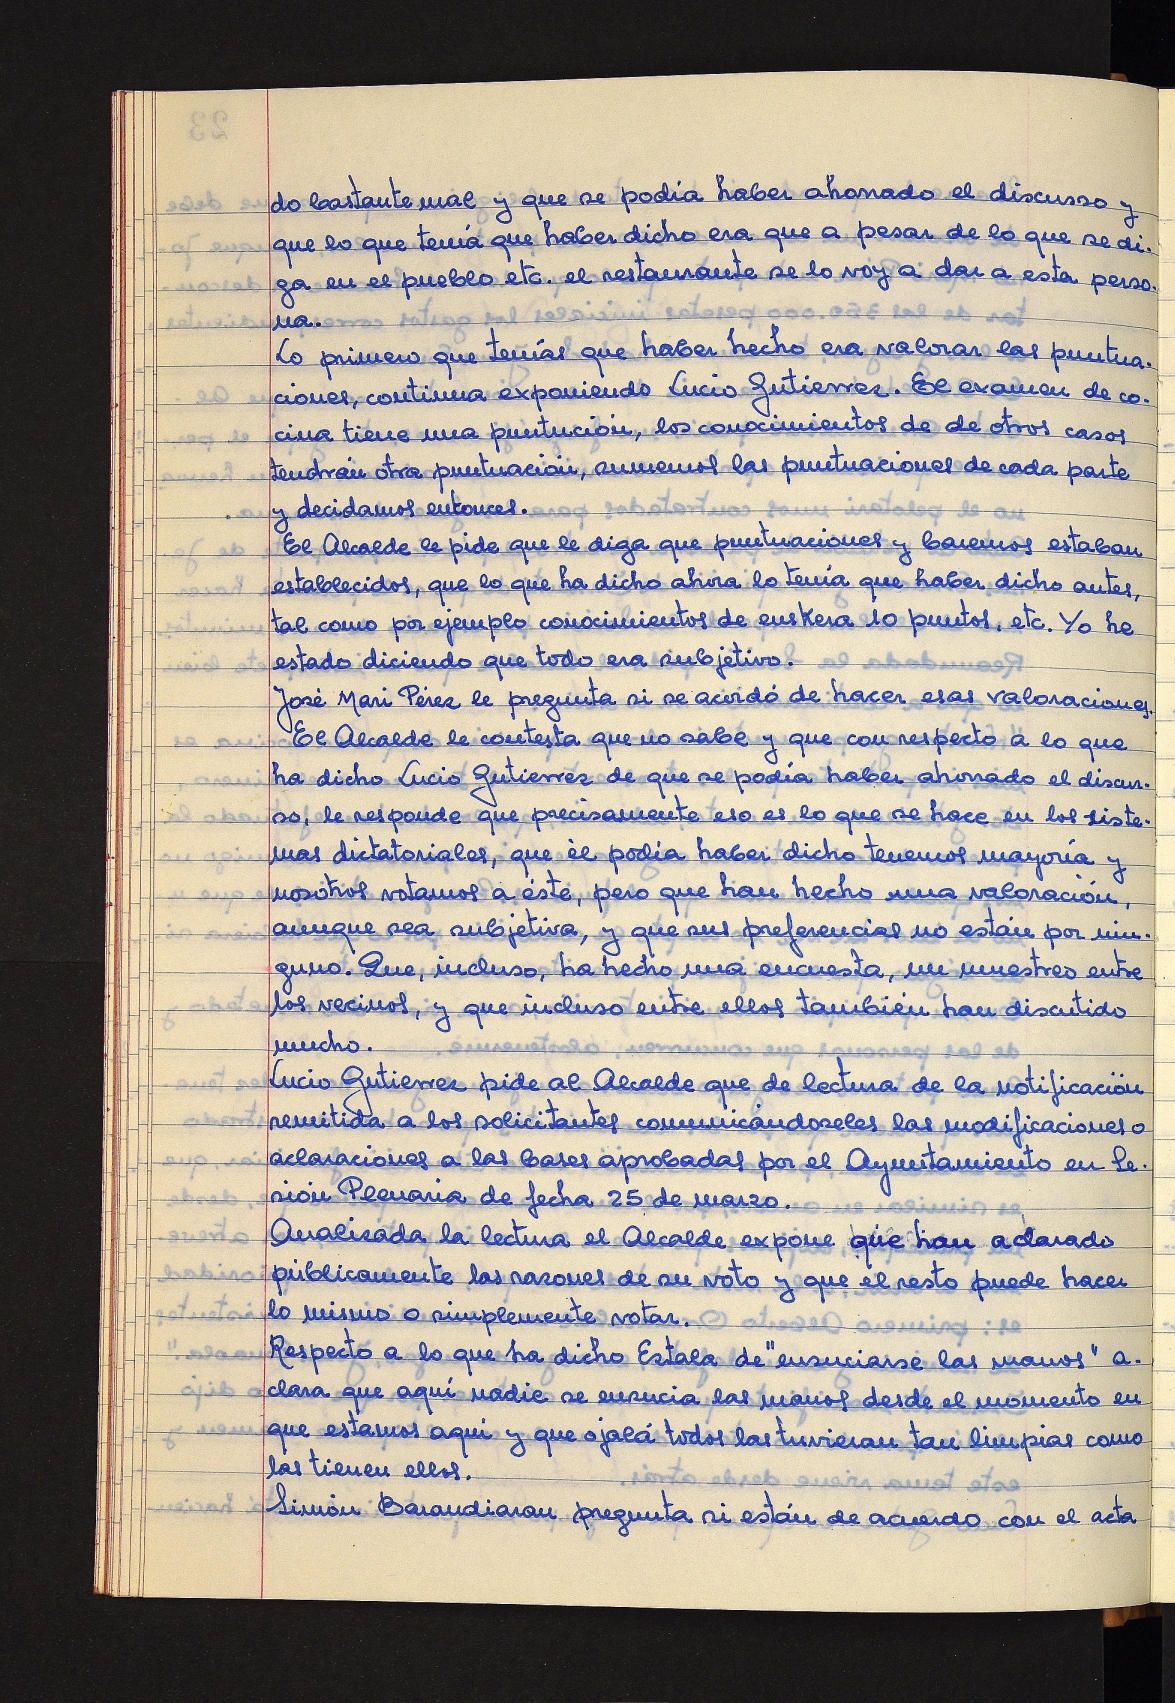 do bastante mal y que se podía haber ahorrado el discurso y
que lo que tenía que haber dicho era que a pesar de lo que se di-
ga en el pueblo etc. el restaurante se lo voy a dar a esta perso-
na.
Lo primero que tenías que haber hecho era valorar las puntua-
ciones, continua exponiendo Lucio Gutierrez. El examen de co-
cina tiene una puntución, los conocimientos de de otros casos
tendrán otra puntuación, sumemos las puntuaciones de cada parte
y decidamos entonces.
El Alcalde le pide que le diga que puntuaciones y baremos estaban
establecidos, que lo que ha dicho ahora lo tenía que haber dicho antes,
tal como por ejemplo conocimientos de euskera 10 puntos, etc. Yo he
estado diciendo que todo era subjetivo.
José Mari Pérez le pregunta si se acordó de hacer esas valoraciones.
El Alcalde le contesta que no sabe y que con respecto a lo que
ha dicho Lucio Gutierrez de que se podía haber ahorrado el discur-
so, le responde que precisamente eso es lo que se hace en los siste-
mas dictatoriales, que él podía haber dicho tenemos mayoría y
nosotros votamos a éste, pero que han hecho una valoración,
aunque sea subjetiva, y que sus preferencias no están por nin-
guno. Que, incluso, ha hecho una encuesta, un muestreo entre
los vecinos, y que incluso entre ellos también han discutido
mucho.
Lucio Gutierrez pide al Alcalde que de lectura de la notificación
remitida a los solicitantes comunicándoseles las modificaciones o
aclaraciones a las bases aprobadas por el Ayuntamiento en Se-
sión Plenaria de fecha 25 de marzo.
Analizada la lectura el Alcalde expone que han aclarado
públicamente las razones de su voto y que el resto puede hacer
lo mismo o simplemente votar.
Respecto a lo que ha dicho Estala de "ensuciarse las manos" a-
clara que aquí nadie se ensucia las manos desde el momento en
que estamos aquí y que ojalá todos las tuvieran tan limpias como
las tienen ellos.
Simón Barandiaran pregunta si están de acuerdo con el acta